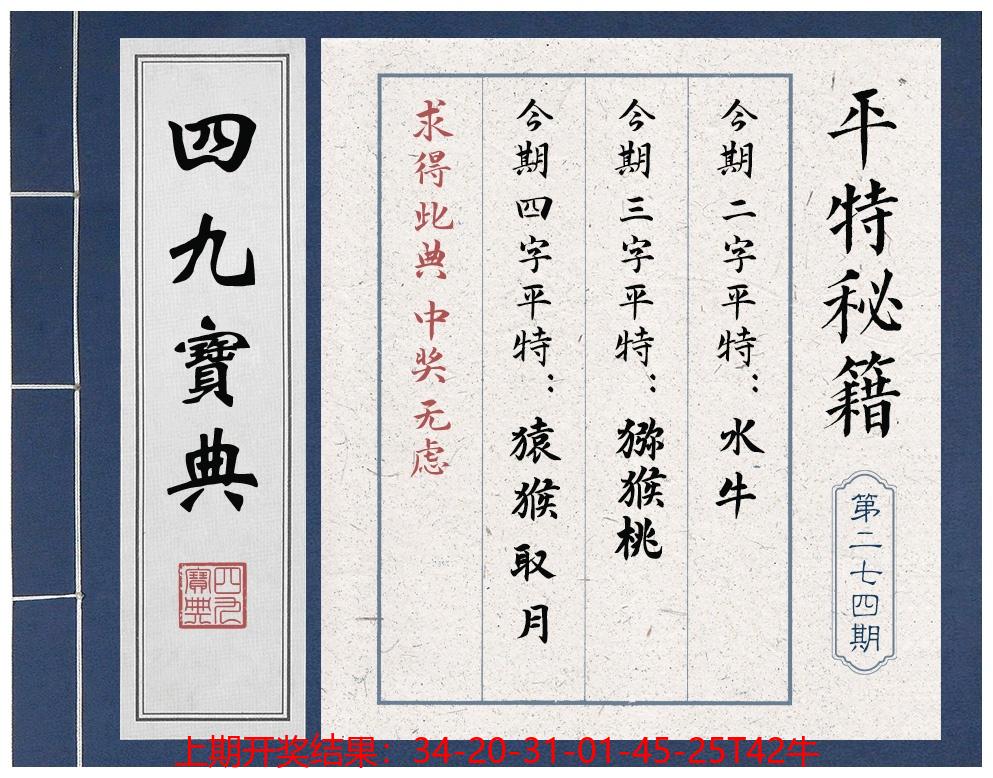 平特秘籍
第二七四期
今期二字平特：水牛
今期三字平特：猕猴桃
今期四字平特：猿猴取月
求得此典 中奖无虑
四九寶典
四九寶典
上期开奖结果：34-20-31-01-45-25T42牛